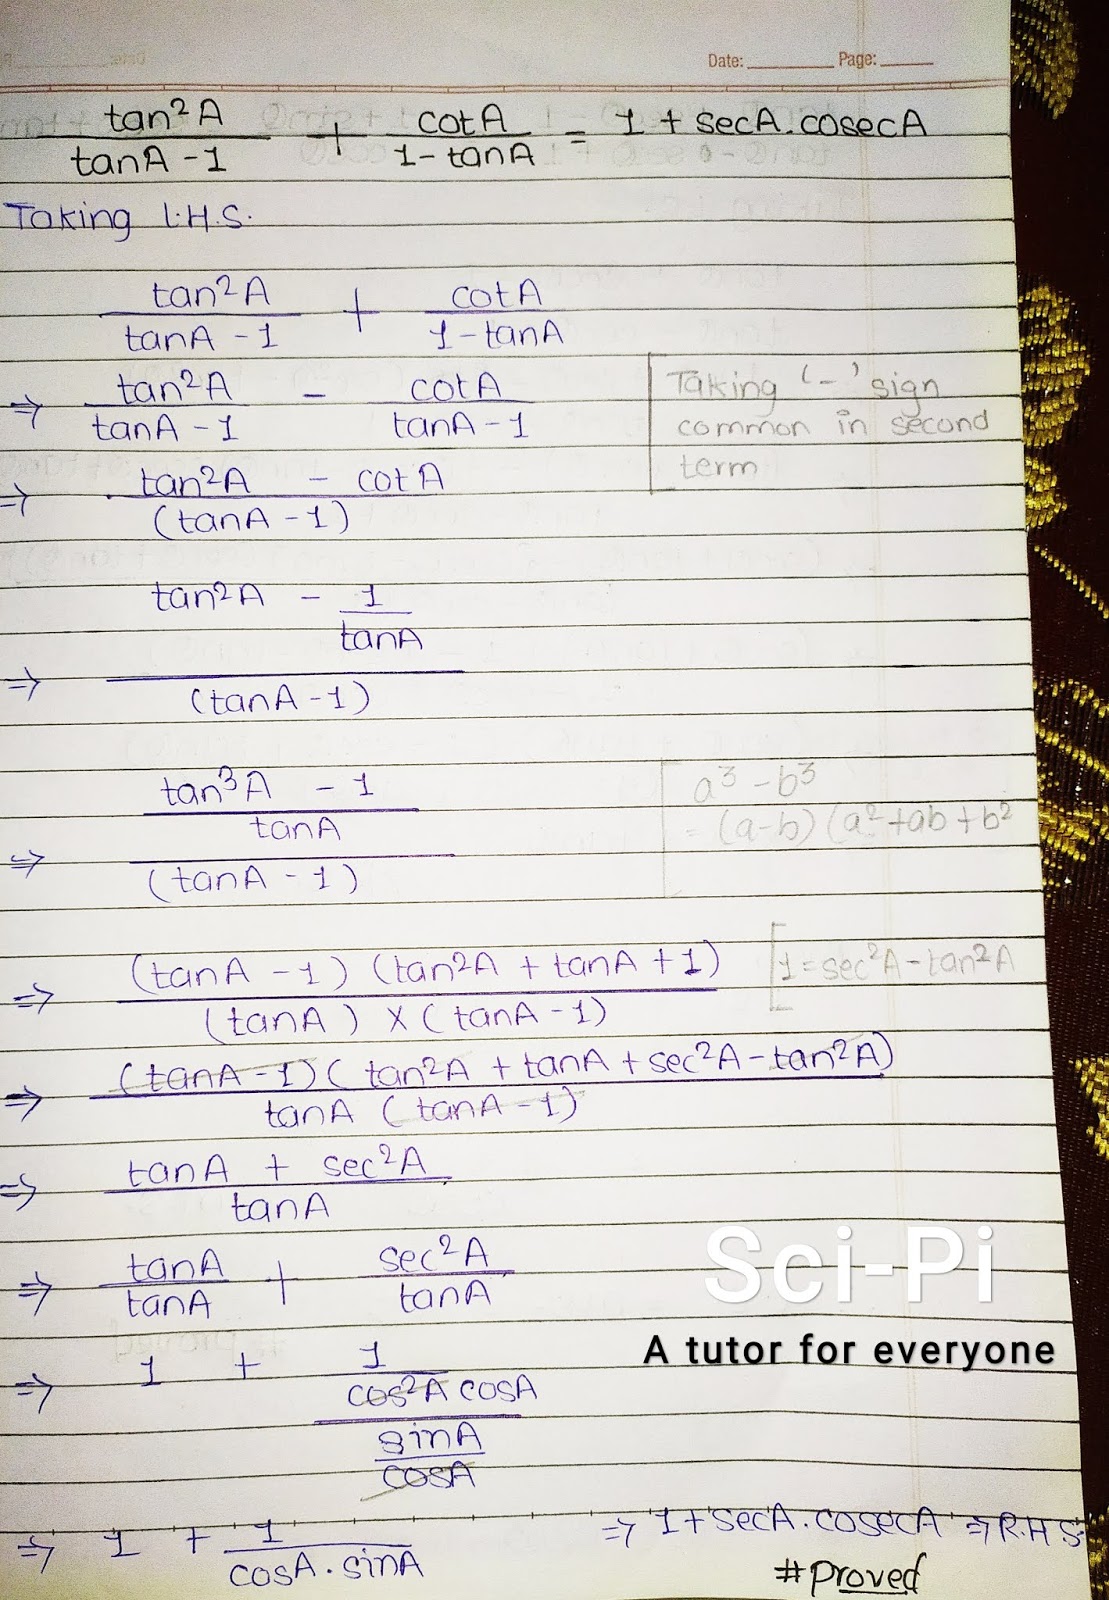 Date: ________ Page: _____
tan²A/(tanA - 1) + cotA/(1 - tanA) = 1 + secA.cosecA
Taking L.H.S.
tan²A/(tanA - 1) + cotA/(1 - tanA)
⇒ tan²A/(tanA - 1) - cotA/(tanA - 1)
Taking '-' sign
common in second
term
⇒ (tan²A - cotA)/(tanA - 1)
⇒ (tan²A - 1/tanA)/(tanA - 1)
⇒ ((tan³A - 1)/tanA)/(tanA - 1)
a³ - b³
= (a-b) (a² + ab + b²
⇒ (tanA - 1) (tan²A + tanA + 1)/(tanA) X (tanA - 1)
[1 = sec²A - tan²A
⇒ (tanA - 1) (tan²A + tanA + sec²A - tan²A)/tanA (tanA - 1)
⇒ (tanA + sec²A)/tanA
⇒ tanA/tanA + sec²A/tanA
⇒ 1 + (1/cos²A cosA)/(sinA/cosA)
⇒ 1 + 1/(cosA . sinA) ⇒ 1 + secA.cosecA ⇒ R.H.S.
#proved
Sci-Pi
A tutor for everyone